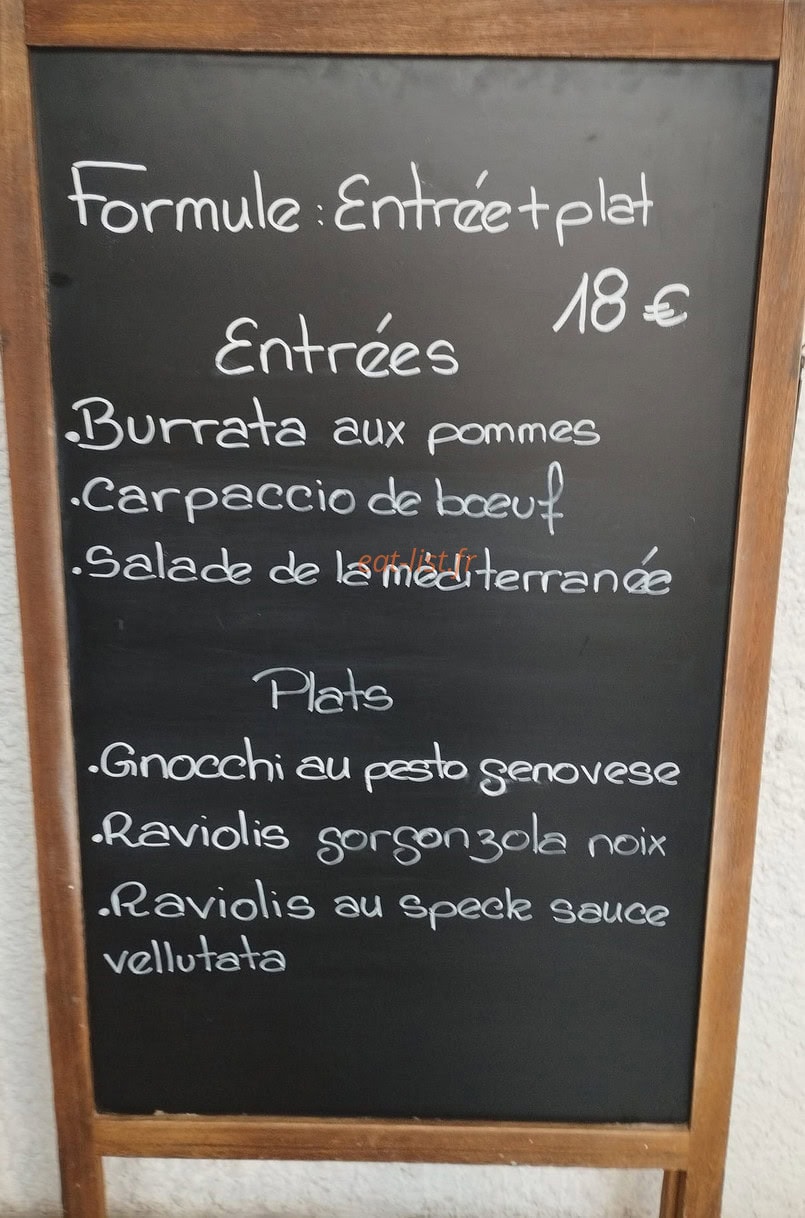 Formule : Entrée + plat
18 €
Entrées
.Burrata aux pommes
.Carpaccio de bœuf
.Salade de la méditerranée
eat-list.fr
Plats
.Gnocchi au pesto genovese
.Raviolis gorgonzola noix
.Raviolis au speck sauce
vellutata